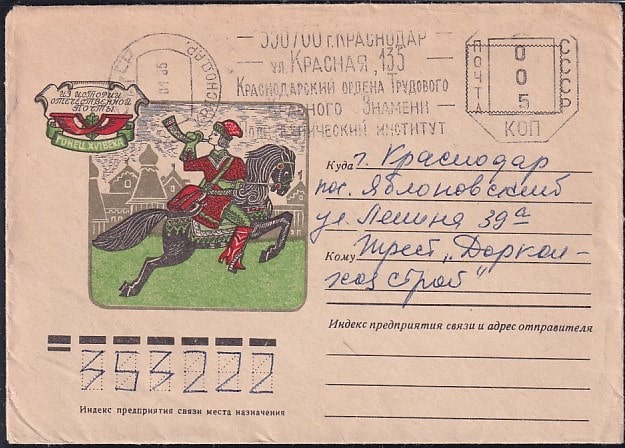 350700 г. КРАСНОДАР
ул. КРАСНАЯ, 135
КРАСНОДАРСКИЙ ОРДЕНА ТРУДОВОГО
КРАСНОГО ЗНАМЕНИ
ИНСТИТУТ
ПОЧТА
СССР
005
КОП
КРАСНОДАР
ИЗ ИСТОРИИ
ОТЕЧЕСТВЕННОЙ
ПОЧТЫ
ГОНЕЦ XVI ВЕКА
Куда г. Краснодар
пос. Яблоновский
ул. Ленина 39а
Кому трест „Доркол-
хозстрой"
Индекс предприятия связи и адрес отправителя
353222
Индекс предприятия связи места назначения